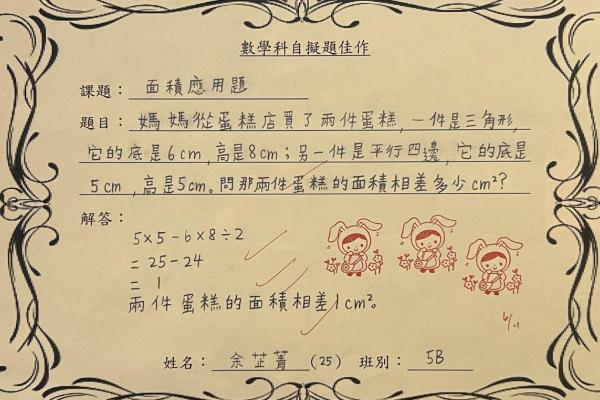 數學科自擬題佳作
課題：面積應用題
題目：媽媽從蛋糕店買了兩件蛋糕，一件是三角形，
它的底是6cm，高是8cm；另一件是平行四邊，它的底是
5cm，高是5cm。問那兩件蛋糕的面積相差多少cm²?
解答：
5×5-6×8÷2
=25-24
=1
兩件蛋糕的面積相差1cm²。
姓名：余芷菁(25) 班別：5B